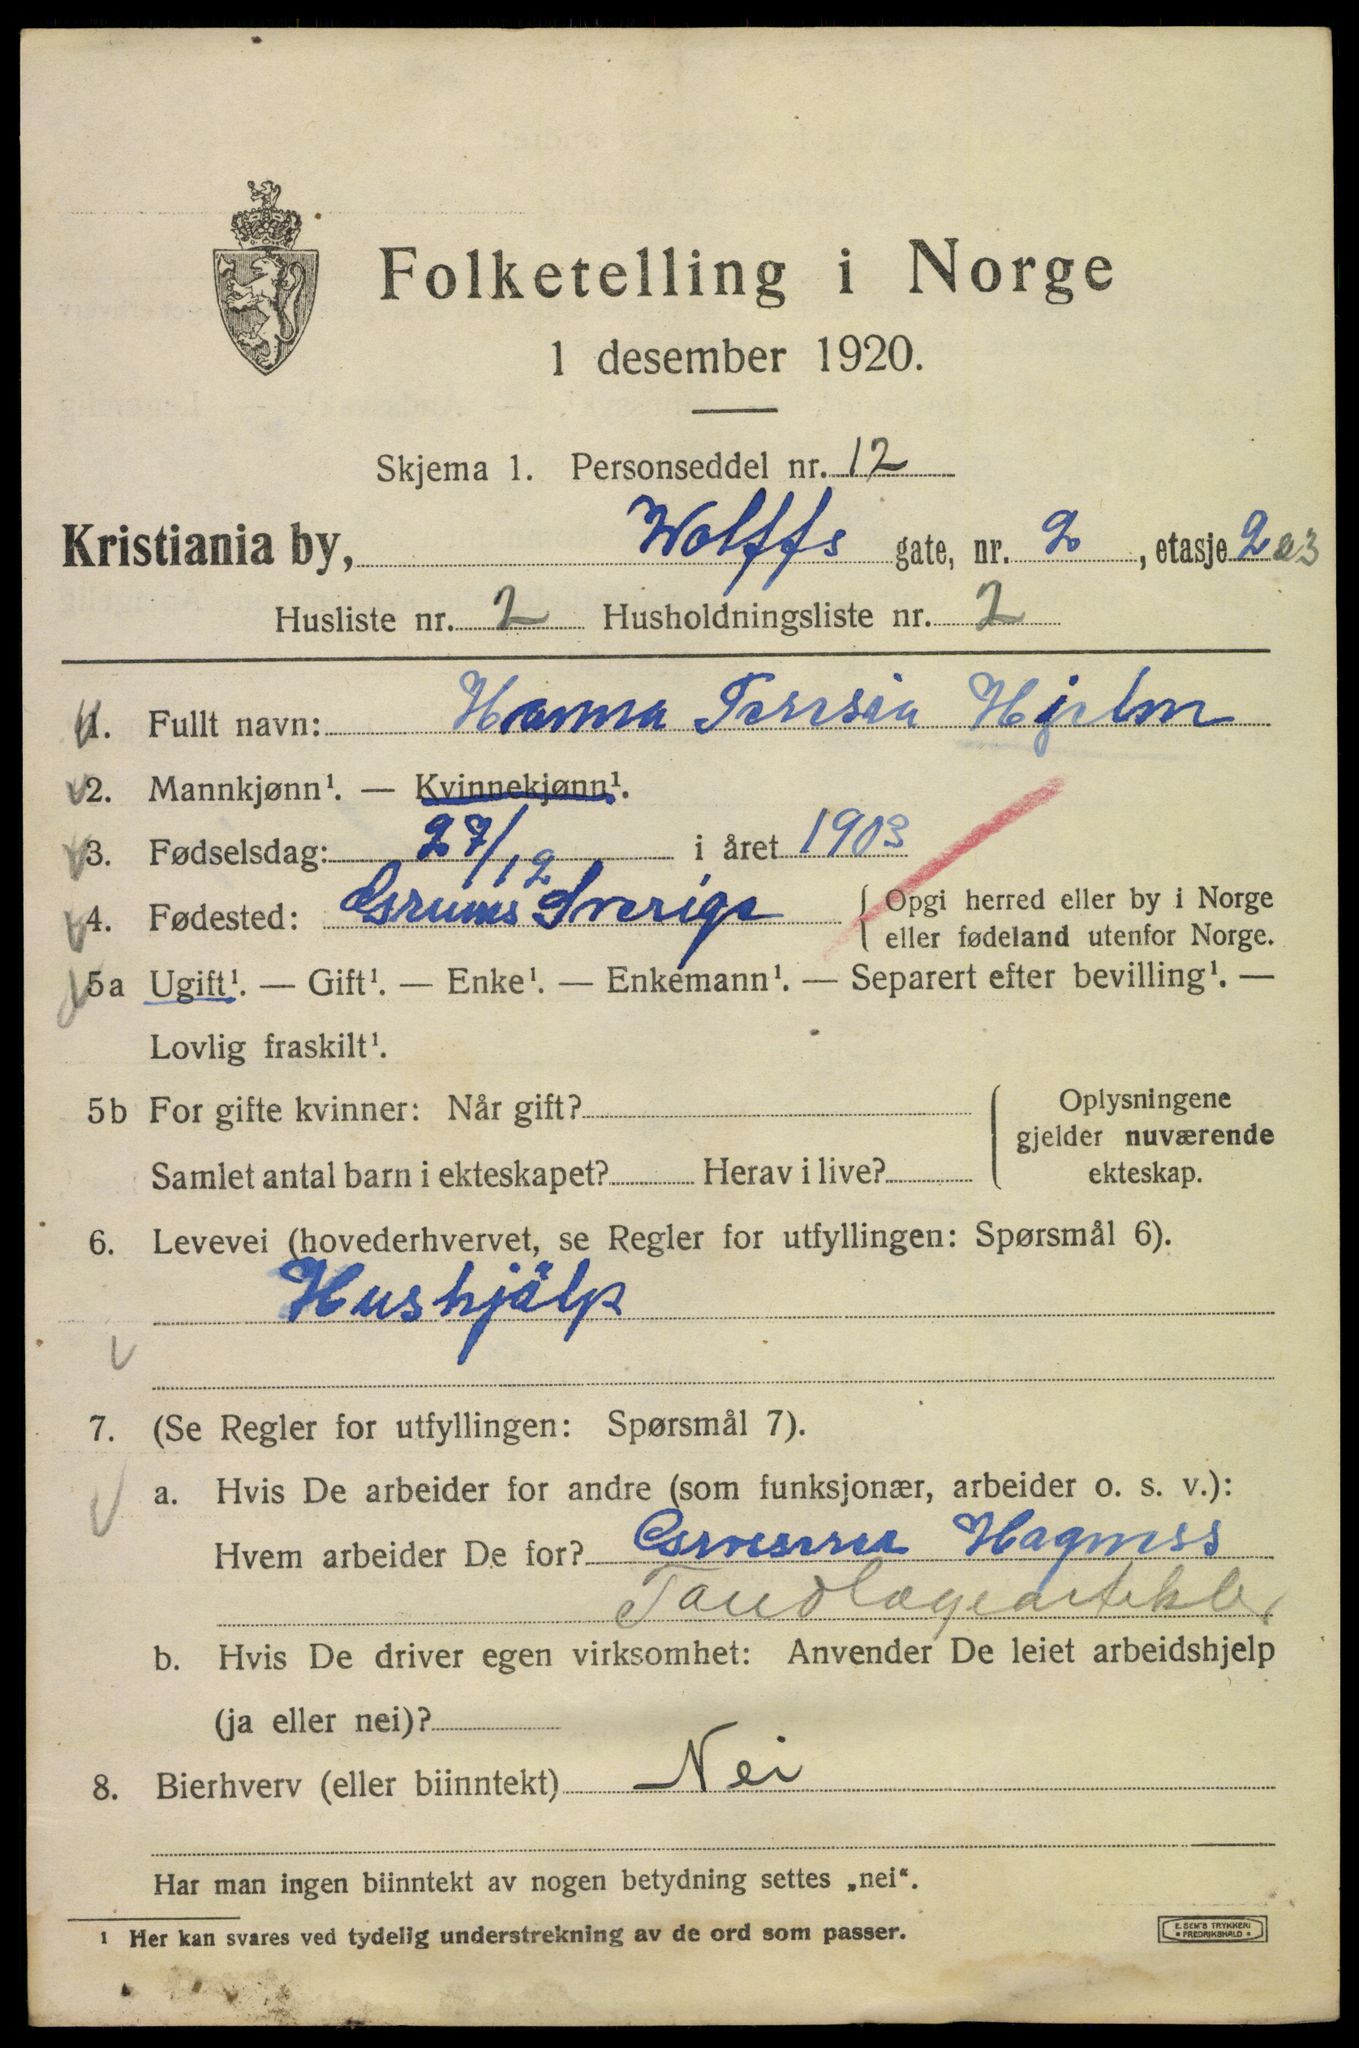 Folketelling i Norge
1 desember 1920.
Skjema 1. Personseddel nr. 12
Kristiania by, Wolffs gate, nr. 2, etasje 2 03
Husliste nr. 2 Husholdningsliste nr. 2
1. Fullt navn: Hanna Teresia Hjelm
2. Mannkjønn¹. — Kvinnekjønn¹.
3. Fødselsdag: 27/12 i året 1903
4. Fødested: Grums Sverige { Opgi herred eller by i Norge
eller fødeland utenfor Norge.
5a Ugift¹. — Gift¹. — Enke¹. — Enkemann¹. — Separert efter bevilling¹. —
Lovlig fraskilt¹.
5b For gifte kvinner: Når gift? { Oplysningene
gjelder nuværende
Samlet antal barn i ekteskapet? Herav i live? ekteskap.
6. Levevei (hovederhvervet, se Regler for utfyllingen: Spørsmål 6).
Hushjälp
7. (Se Regler for utfyllingen: Spørsmål 7).
a. Hvis De arbeider for andre (som funksjonær, arbeider o. s. v.):
Hvem arbeider De for?
Tandlægeartikler
b. Hvis De driver egen virksomhet: Anvender De leiet arbeidshjelp
(ja eller nei)?
8. Bierhverv (eller biinntekt) Nei
Har man ingen biinntekt av nogen betydning settes „nei“.
¹ Her kan svares ved tydelig understrekning av de ord som passer.
E. SEM'S TRYKKERI
FREDRIKSHALD